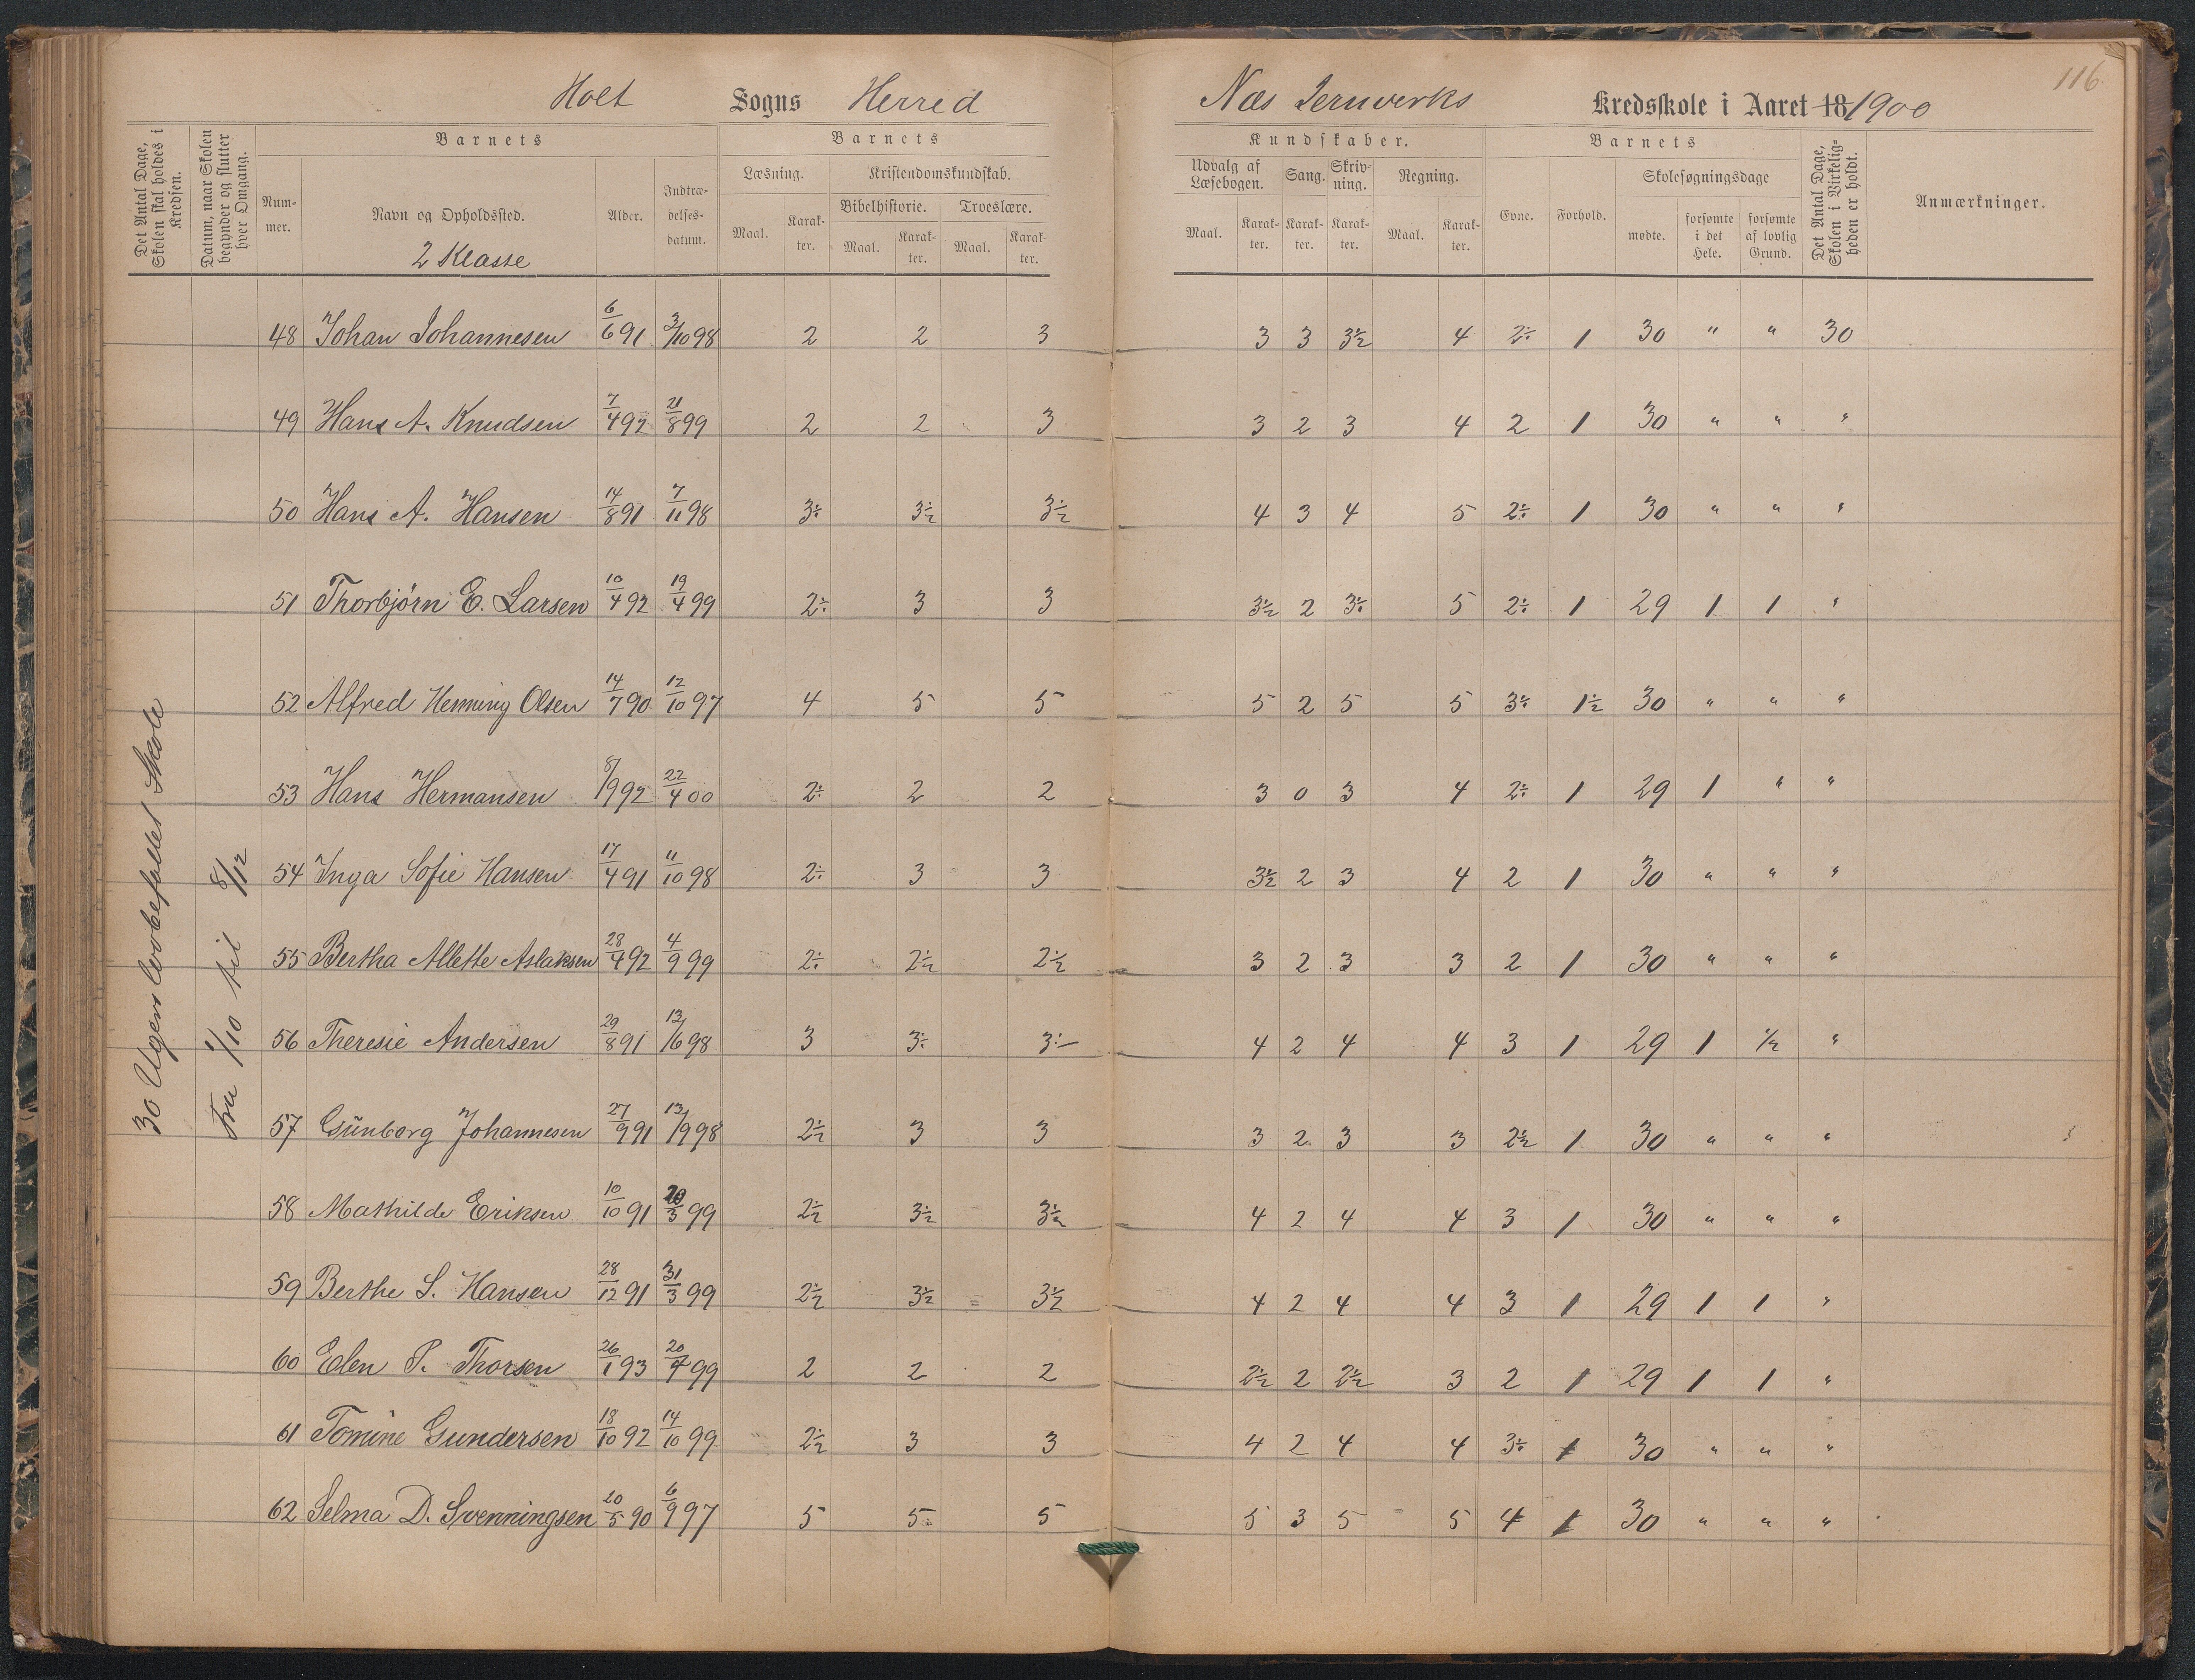 116
Holt Sogns Herred Næs Jernverks Kredsskole i Aaret 18 1900
Det Antal Dage, Skolen skal holdes i Kredsen.
Datum, naar Skolen begynder og slutter hver Omgang.
Barnets
Nummer.
Navn og Opholdssted.
2 Klasse
Alder.
Indtrædelsesdatum.
Barnets
Læsning.
Maal.
Karakter.
Kristendomskundskab.
Bibelhistorie.
Maal.
Karakter.
Troeslære.
Maal.
Karakter.
Kundskaber.
Udvalg af Læsebogen.
Maal.
Karakter.
Sang.
Karakter.
Skrivning.
Karakter.
Regning.
Maal.
Karakter.
Barnets
Evne.
Forhold.
Skolesøgningsdage
mødte.
forsømte i det Hele.
forsømte af lovlig Grund.
Det Antal Dage, Skolen i Virkeligheden er holdt.
Anmærkninger.
30 Ugers lovbefallet Skole
Fra 1/10 til 8/12
48 Johan Johannesen 6/6 91 3/10 98 2 2 3 3 3 3½ 4 2÷ 1 30 " " 30
49 Hans A. Knudsen 7/4 92 21/8 99 2 2 3 3 2 3 4 2 1 30 " " "
50 Hans A. Hansen 14/8 91 7/11 98 3÷ 3½ 3½ 4 3 4 5 2÷ 1 30 " " "
51 Thorbjørn E. Larsen 10/4 92 19/4 99 2÷ 3 3 3½ 2 3÷ 5 2÷ 1 29 1 1 "
52 Alfred Henning Olsen 14/7 90 12/10 97 4 5 5 5 2 5 5 3÷ 1½ 30 " " "
53 Hans Hermansen 8/9 92 22/4 00 2÷ 2 2 3 0 3 4 2÷ 1 29 1 " "
54 Inga Sofie Hansen 17/4 91 11/10 98 2÷ 3 3 3½ 2 3 4 2 1 30 " " "
55 Bertha Allette Aslaksen 28/4 92 4/9 99 2÷ 2½ 2½ 3 2 3 3 2 1 30 " " "
56 Theresie Andersen 29/8 91 13/6 98 3 3÷ 3÷ 4 2 4 4 3 1 29 1 ½ "
57 Günborg Johannesen 27/9 91 13/9 98 2½ 3 3 3 2 3 3 2½ 1 30 " " "
58 Mathilde Eriksen 10/10 91 20/3 99 2½ 3½ 3½ 4 2 4 4 3 1 30 " " "
59 Berthe S. Hansen 28/12 91 31/3 99 2½ 3½ 3½ 4 2 4 4 3 1 29 1 1 "
60 Elen P. Thorsen 26/1 93 20/4 99 2 2 2 2½ 2 2½ 3 2 1 29 1 1 "
61 Tomine Gundersen 18/10 92 14/10 99 2½ 3 3 4 2 4 4 3÷ 1 30 " " "
62 Selma D. Svenningsen 20/5 90 6/9 97 5 5 5 5 3 5 5 4 1 30 " " "